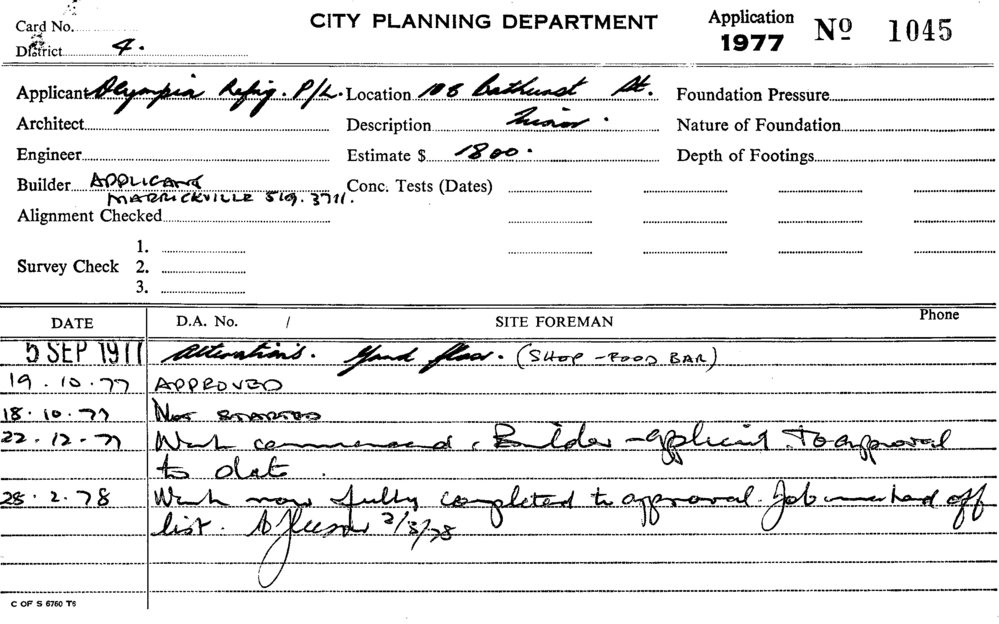 Card No.
CITY PLANNING DEPARTMENT
Application 1977 Nº 1045
District 4.
Applicant Olympia Refrig. P/L. Location 108 Bathurst St. Foundation Pressure
Architect Description Nature of Foundation
Engineer Estimate $ 1800. Depth of Footings
Builder APPLICANT Conc. Tests (Dates)
MARRICKVILLE 519.3711.
Alignment Checked
1.
Survey Check 2.
3.
DATE D.A. No. / SITE FOREMAN Phone
5 SEP 1977 Alterations. Grnd floor. (SHOP - FOOD BAR)
19.10.77 APPROVED
18.10.77 NOT STARTED
22.12.77 Work commenced. Builder - applicant. To approval
to date.
28.2.78 Work now fully completed to approval. Job marked off
list. 2/3/78
C OF S 6760 T6